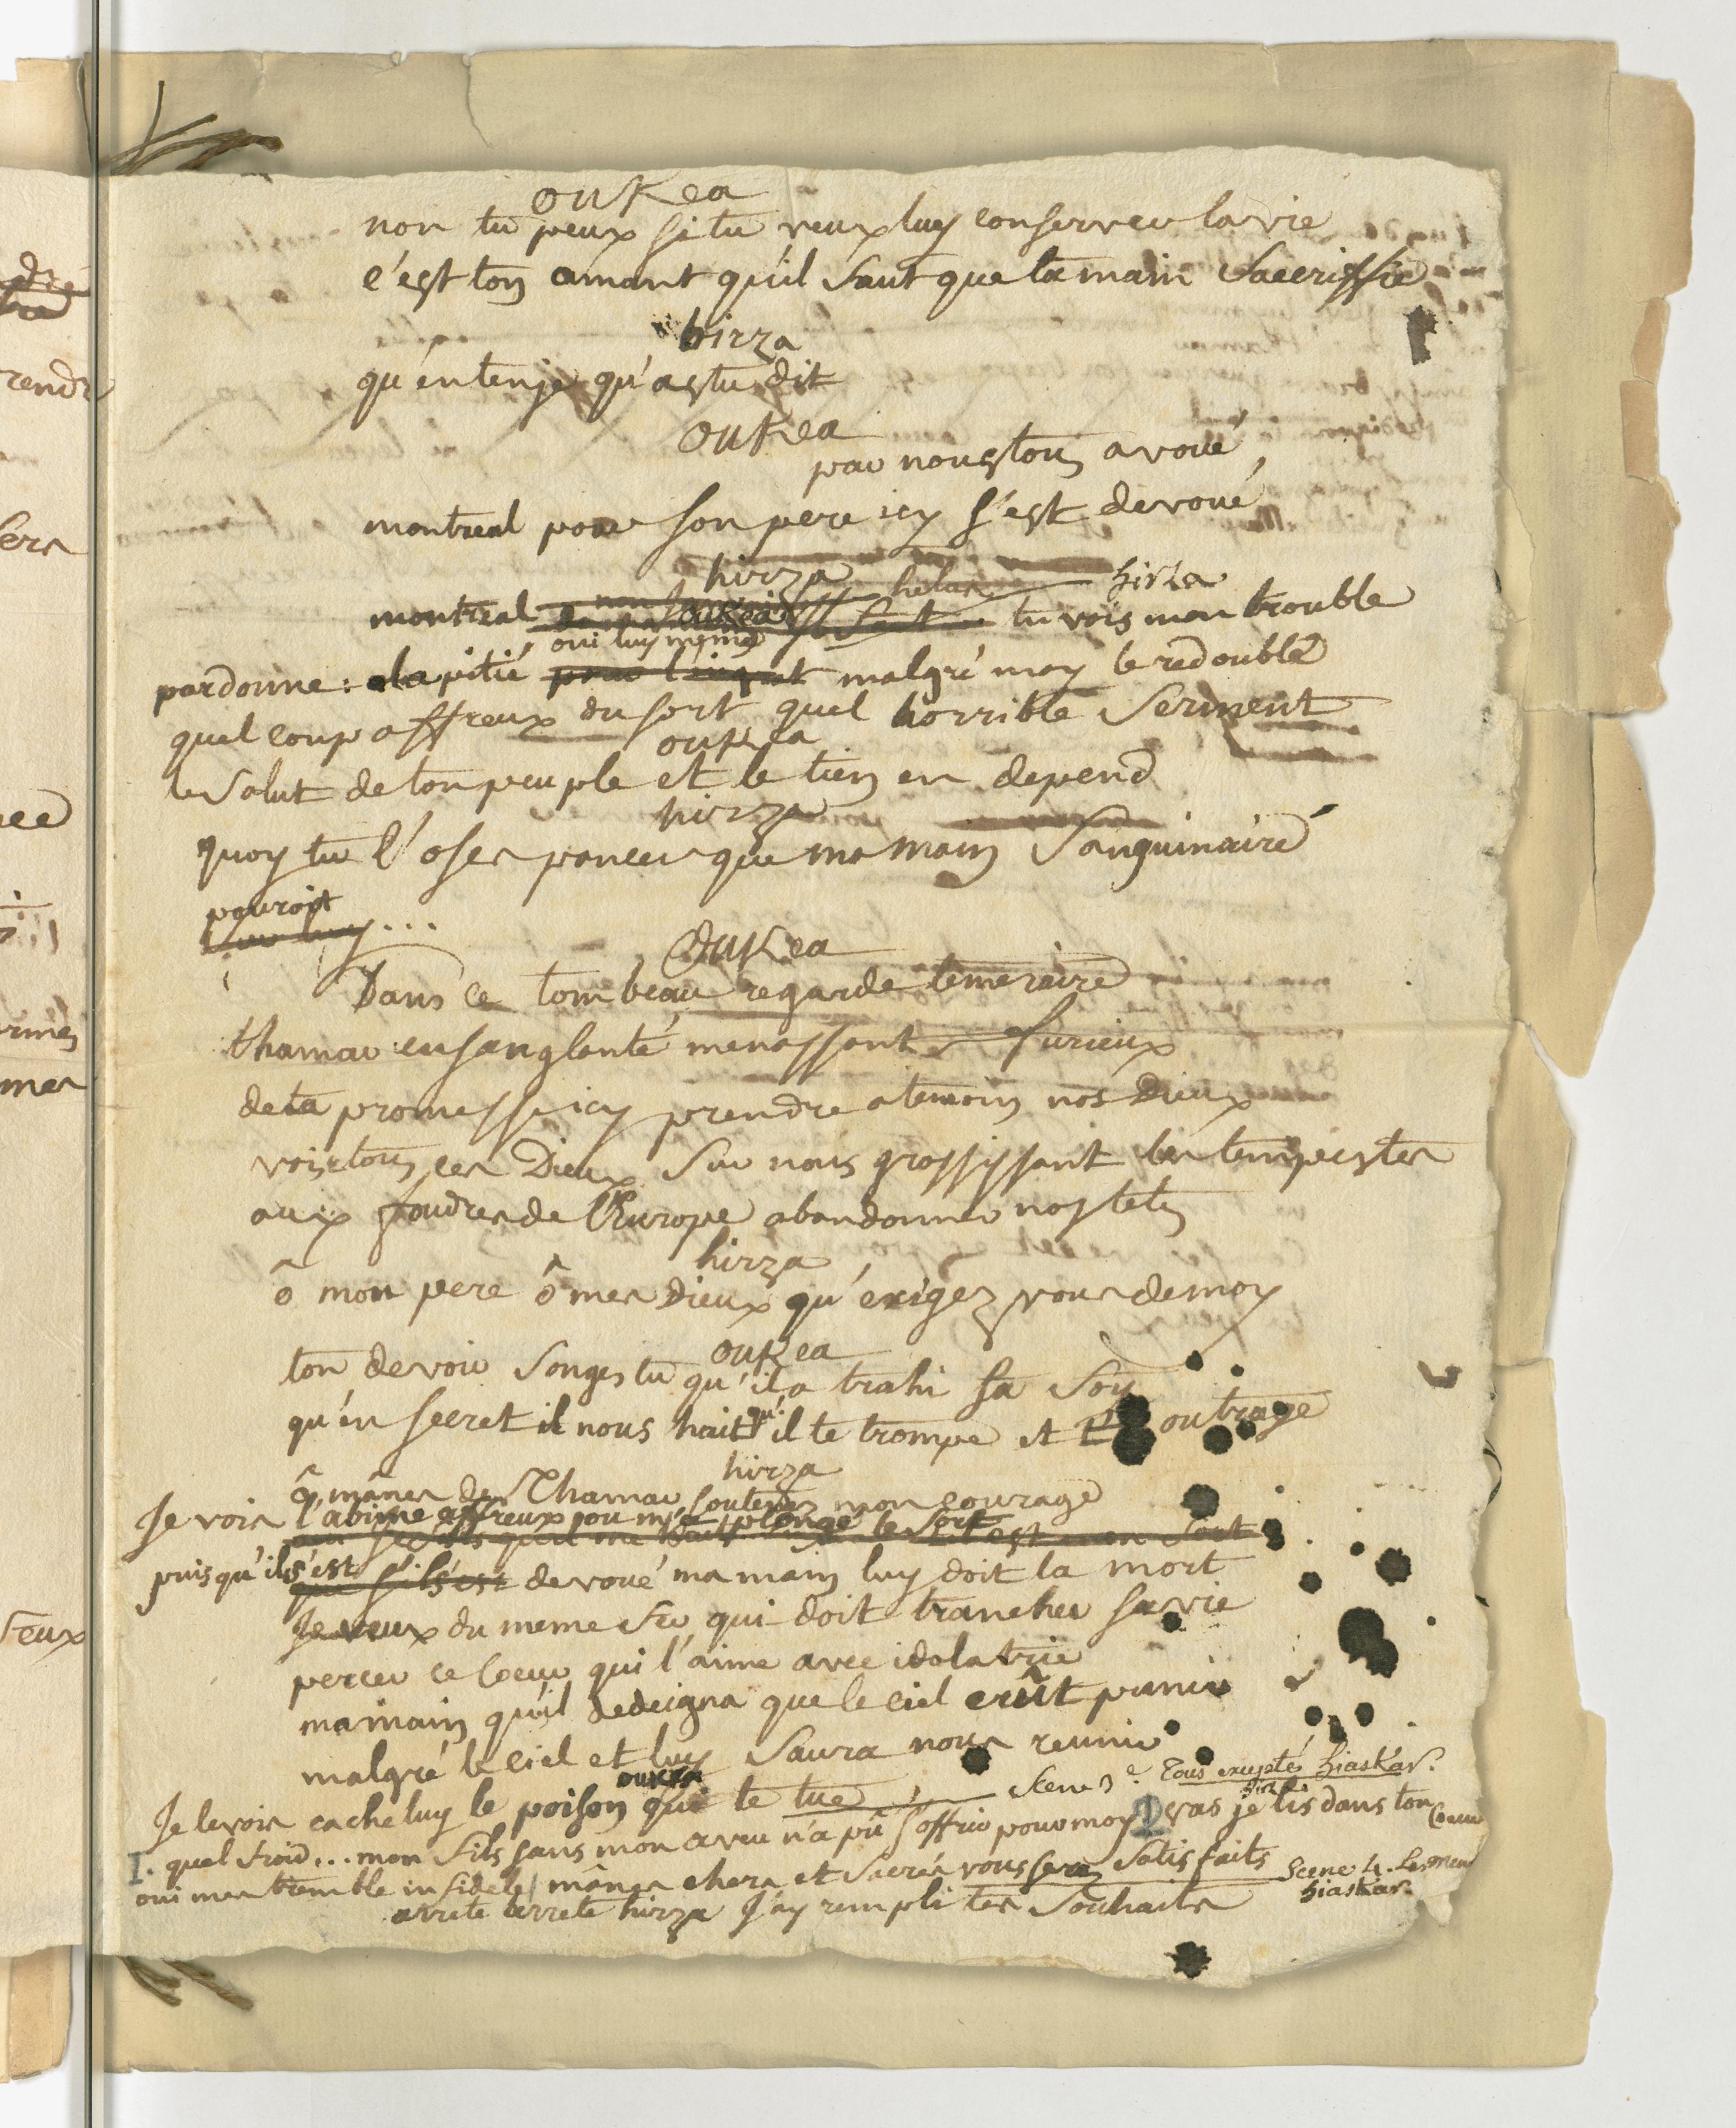 oukea
non tu peux si tu veux luy conserver la vie
c'est ton amant qu'il faut que ta main sacriffie
hirza
qu'entenje qu'astu dit
oukea
par nous tous avoué
montreal pour son pere icy s'est devoué
hirza helas hirza
montreal tu vois mon trouble
oui luy meme
pardonne : la pitié pour l'ingrat malgré moy le redouble
quel coup affreux du sort quel horrible serment
oukea
le salut de ton peuple et le tien en depend
hirza
quoy tu l'oses pancer que ma main sanguinaire
pouroit
...
oukea
Dans ce tombeau regarde temeraire
thamar ensanglanté menassant furieux
de ta promesse icy prendre a temoin nos Dieux
vois tous ces Dieux sur nous grossissant les tempestes
aux foudres de l'Europe abandonner nos tetes
hirza
ô mon pere ô mes Dieux qu'exigez vous de moy
oukea
ton devoir songes tu qu'il a trahi sa foy
qu'en secret il nous hait qu'il te trompe et t'outrage
hirza
ô mânes de Thamar soutenez mon courage
Je vois l'abime affreux ou m'a plongé le sort
puisqu'il s'est devoué ma main luy doit la mort
Je veux du meme fer qui doit trancher sa vie
percer ce coeur qui l'aime avec idolatrie
ma main qu'il dedeigna que le ciel crût punir
malgré le ciel et luy saura nous reunir
oukea Scene 3e. Tous exeptés hiaskar.
Je le vois cache luy le poison qui te tue
hirza
I. quel froid... mon fils sans mon aveu n'a pû s'offrir pour moy vas je lis dans ton coeur
oui mes tremble infidele / mânes chers et sacrés vous serez satisfaits Scene 4. Les meme
hiaskar.
arrete arrete hirza J'ay rempli tes souhaits